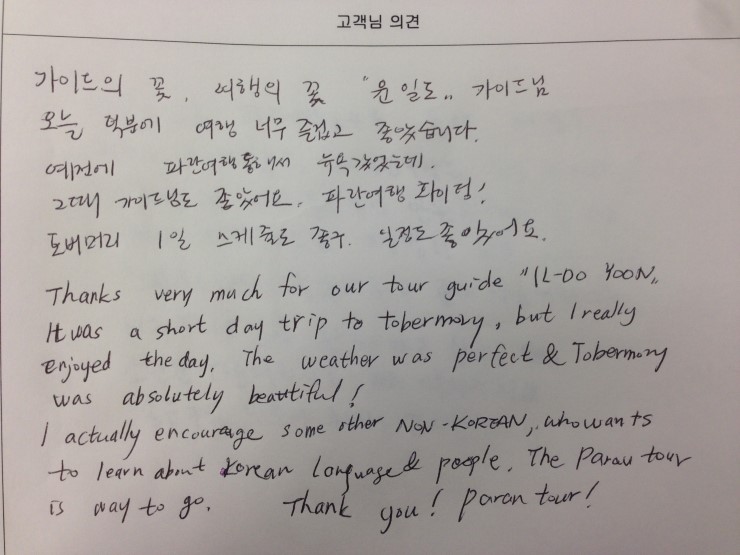 고객님 의견
가이드의 꽃, 여행의 꽃 "윤일도" 가이드님
오늘 덕분에 여행 너무 즐겁고 좋았습니다.
예전에 파란여행통해서 뉴욕갔었는데.
그때 가이드님도 좋았어요. 파란여행 화이팅!
토버머리 1일 스케줄로 좋구. 일정도 좋았어요.
Thanks very much for our tour guide "IL-DO YOON"
It was a short day trip to tobermory, but I really
enjoyed the day. The weather was perfect & Tobermory
was absolutely beautiful!
I actually encourage some other NON-KOREAN, who wants
to learn about Korean language & people. The Paran tour
is way to go. Thank you! paran tour!